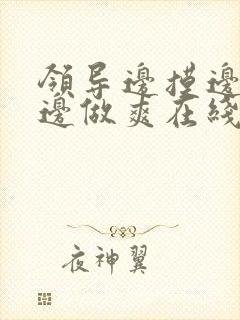 領导邊摸邊
邊做爽在綫
夜神翼